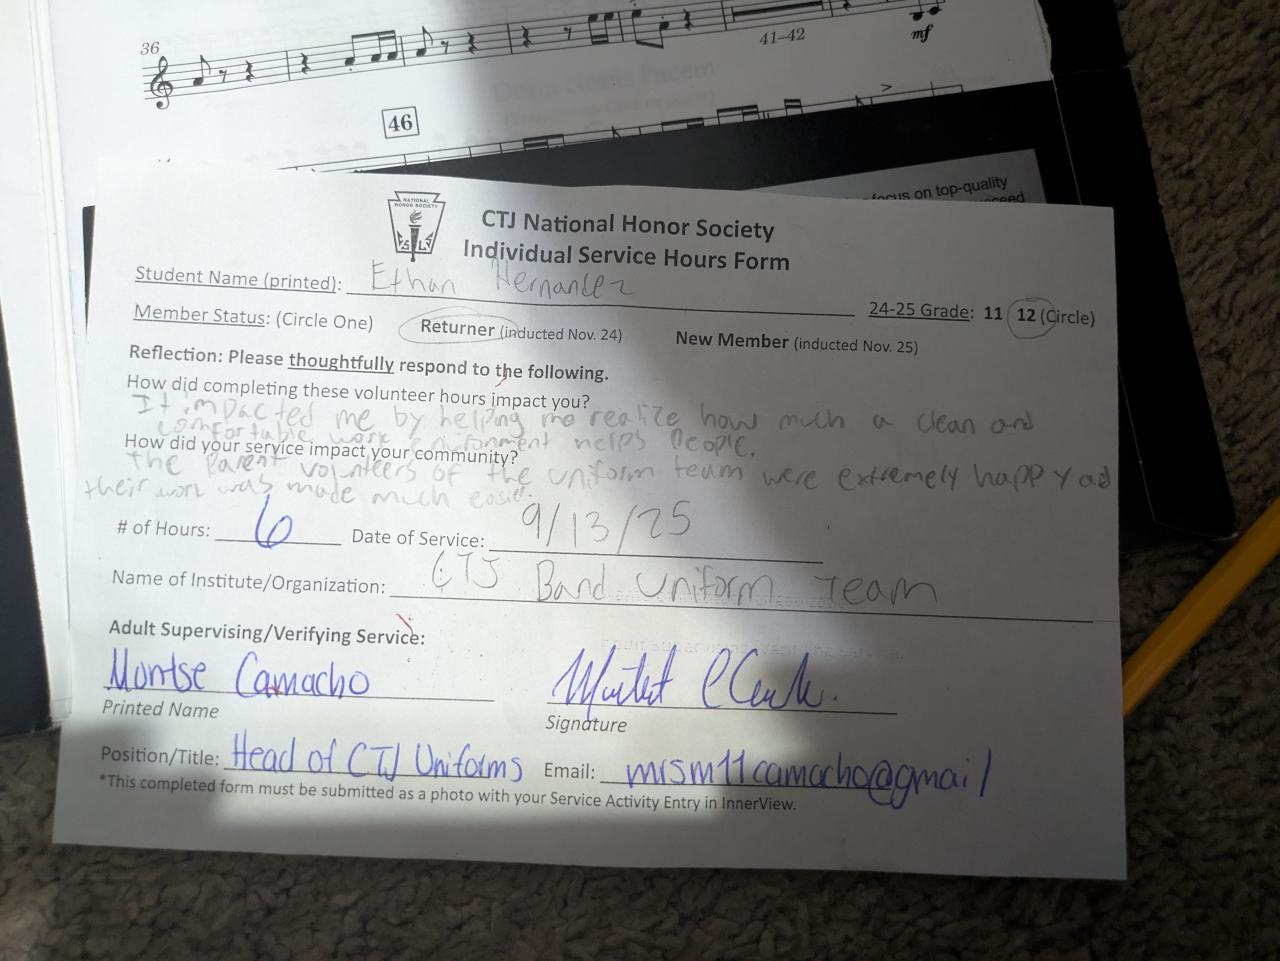 36
41–42
mf
46
focus on top-quality
NATIONAL
HONOR SOCIETY
CTJ National Honor Society
Individual Service Hours Form
Student Name (printed): Ethan Hernandez
24-25 Grade: 11 12 (Circle)
Member Status: (Circle One) Returner (inducted Nov. 24) New Member (inducted Nov. 25)
Reflection: Please thoughtfully respond to the following.
How did completing these volunteer hours impact you?
It impacted me by helping me realize how much a clean and
comfortable work environment helps people.
How did your service impact your community?
The Parent volunteers of the uniform team were extremely happy ad
their work was made much easier.
# of Hours: 6 Date of Service: 9/13/25
Name of Institute/Organization: CTJ Band Uniform Team
Adult Supervising/Verifying Service:
Montse Camacho
Printed Name
Signature
Position/Title: Head of CTJ Uniforms Email: mrsm11camacho@gmail
*This completed form must be submitted as a photo with your Service Activity Entry in InnerView.